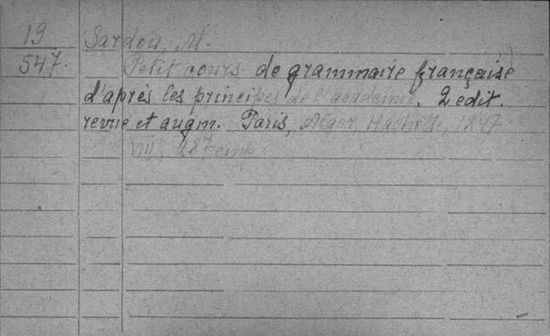 19
547.
Sardou, M.
Petit cours de grammaire française
d'après les principes de l'academie. 2 edit.
revue et augm. Paris, Alger, Hachette, 1847
VIII,